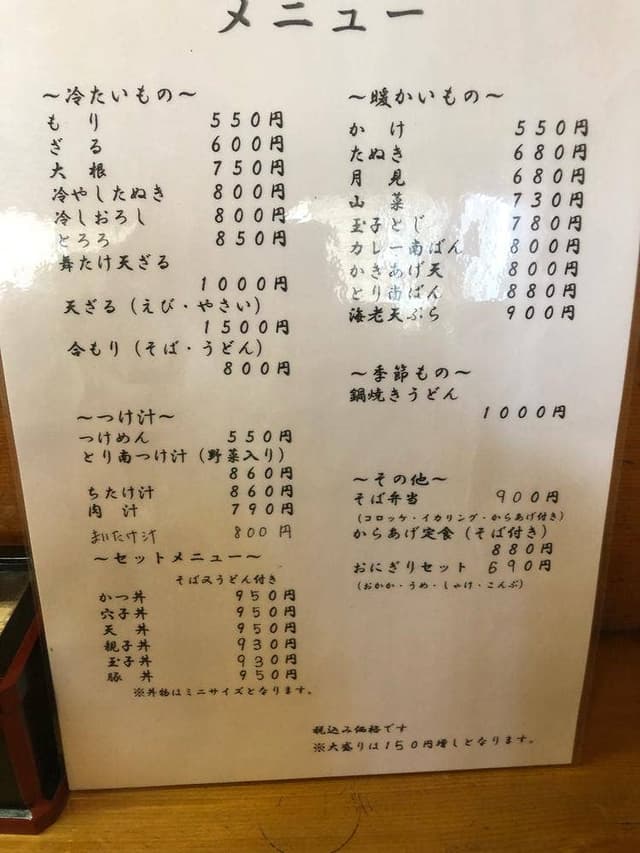 メニュー
〜冷たいもの〜
もり 550円
ざる 600円
大根 750円
冷やしたぬき 800円
冷しおろし 800円
とろろ 850円
舞たけ天ざる
1000円
天ざる（えび・やさい）
1500円
合もり（そば・うどん）
800円
〜つけ汁〜
つけめん 550円
とり南つけ汁（野菜入り）
860円
ちたけ汁 860円
肉汁 790円
まいたけ汁 800円
〜セットメニュー〜
そば又うどん付き
かつ丼 950円
穴子丼 950円
天丼 950円
親子丼 930円
玉子丼 930円
豚丼 950円
※丼物はミニサイズとなります。
〜暖かいもの〜
かけ 550円
たぬき 680円
月見 680円
山菜 730円
玉子とじ 780円
カレー南ばん 800円
かきあげ天 800円
とり南ばん 880円
海老天ぷら 900円
〜季節もの〜
鍋焼きうどん
1000円
〜その他〜
そば弁当 900円
（コロッケ・イカリング・からあげ付き）
からあげ定食（そば付き）
880円
おにぎりセット 690円
（おかか・うめ・しゃけ・こんぶ）
税込み価格です
※大盛りは150円増しとなります。